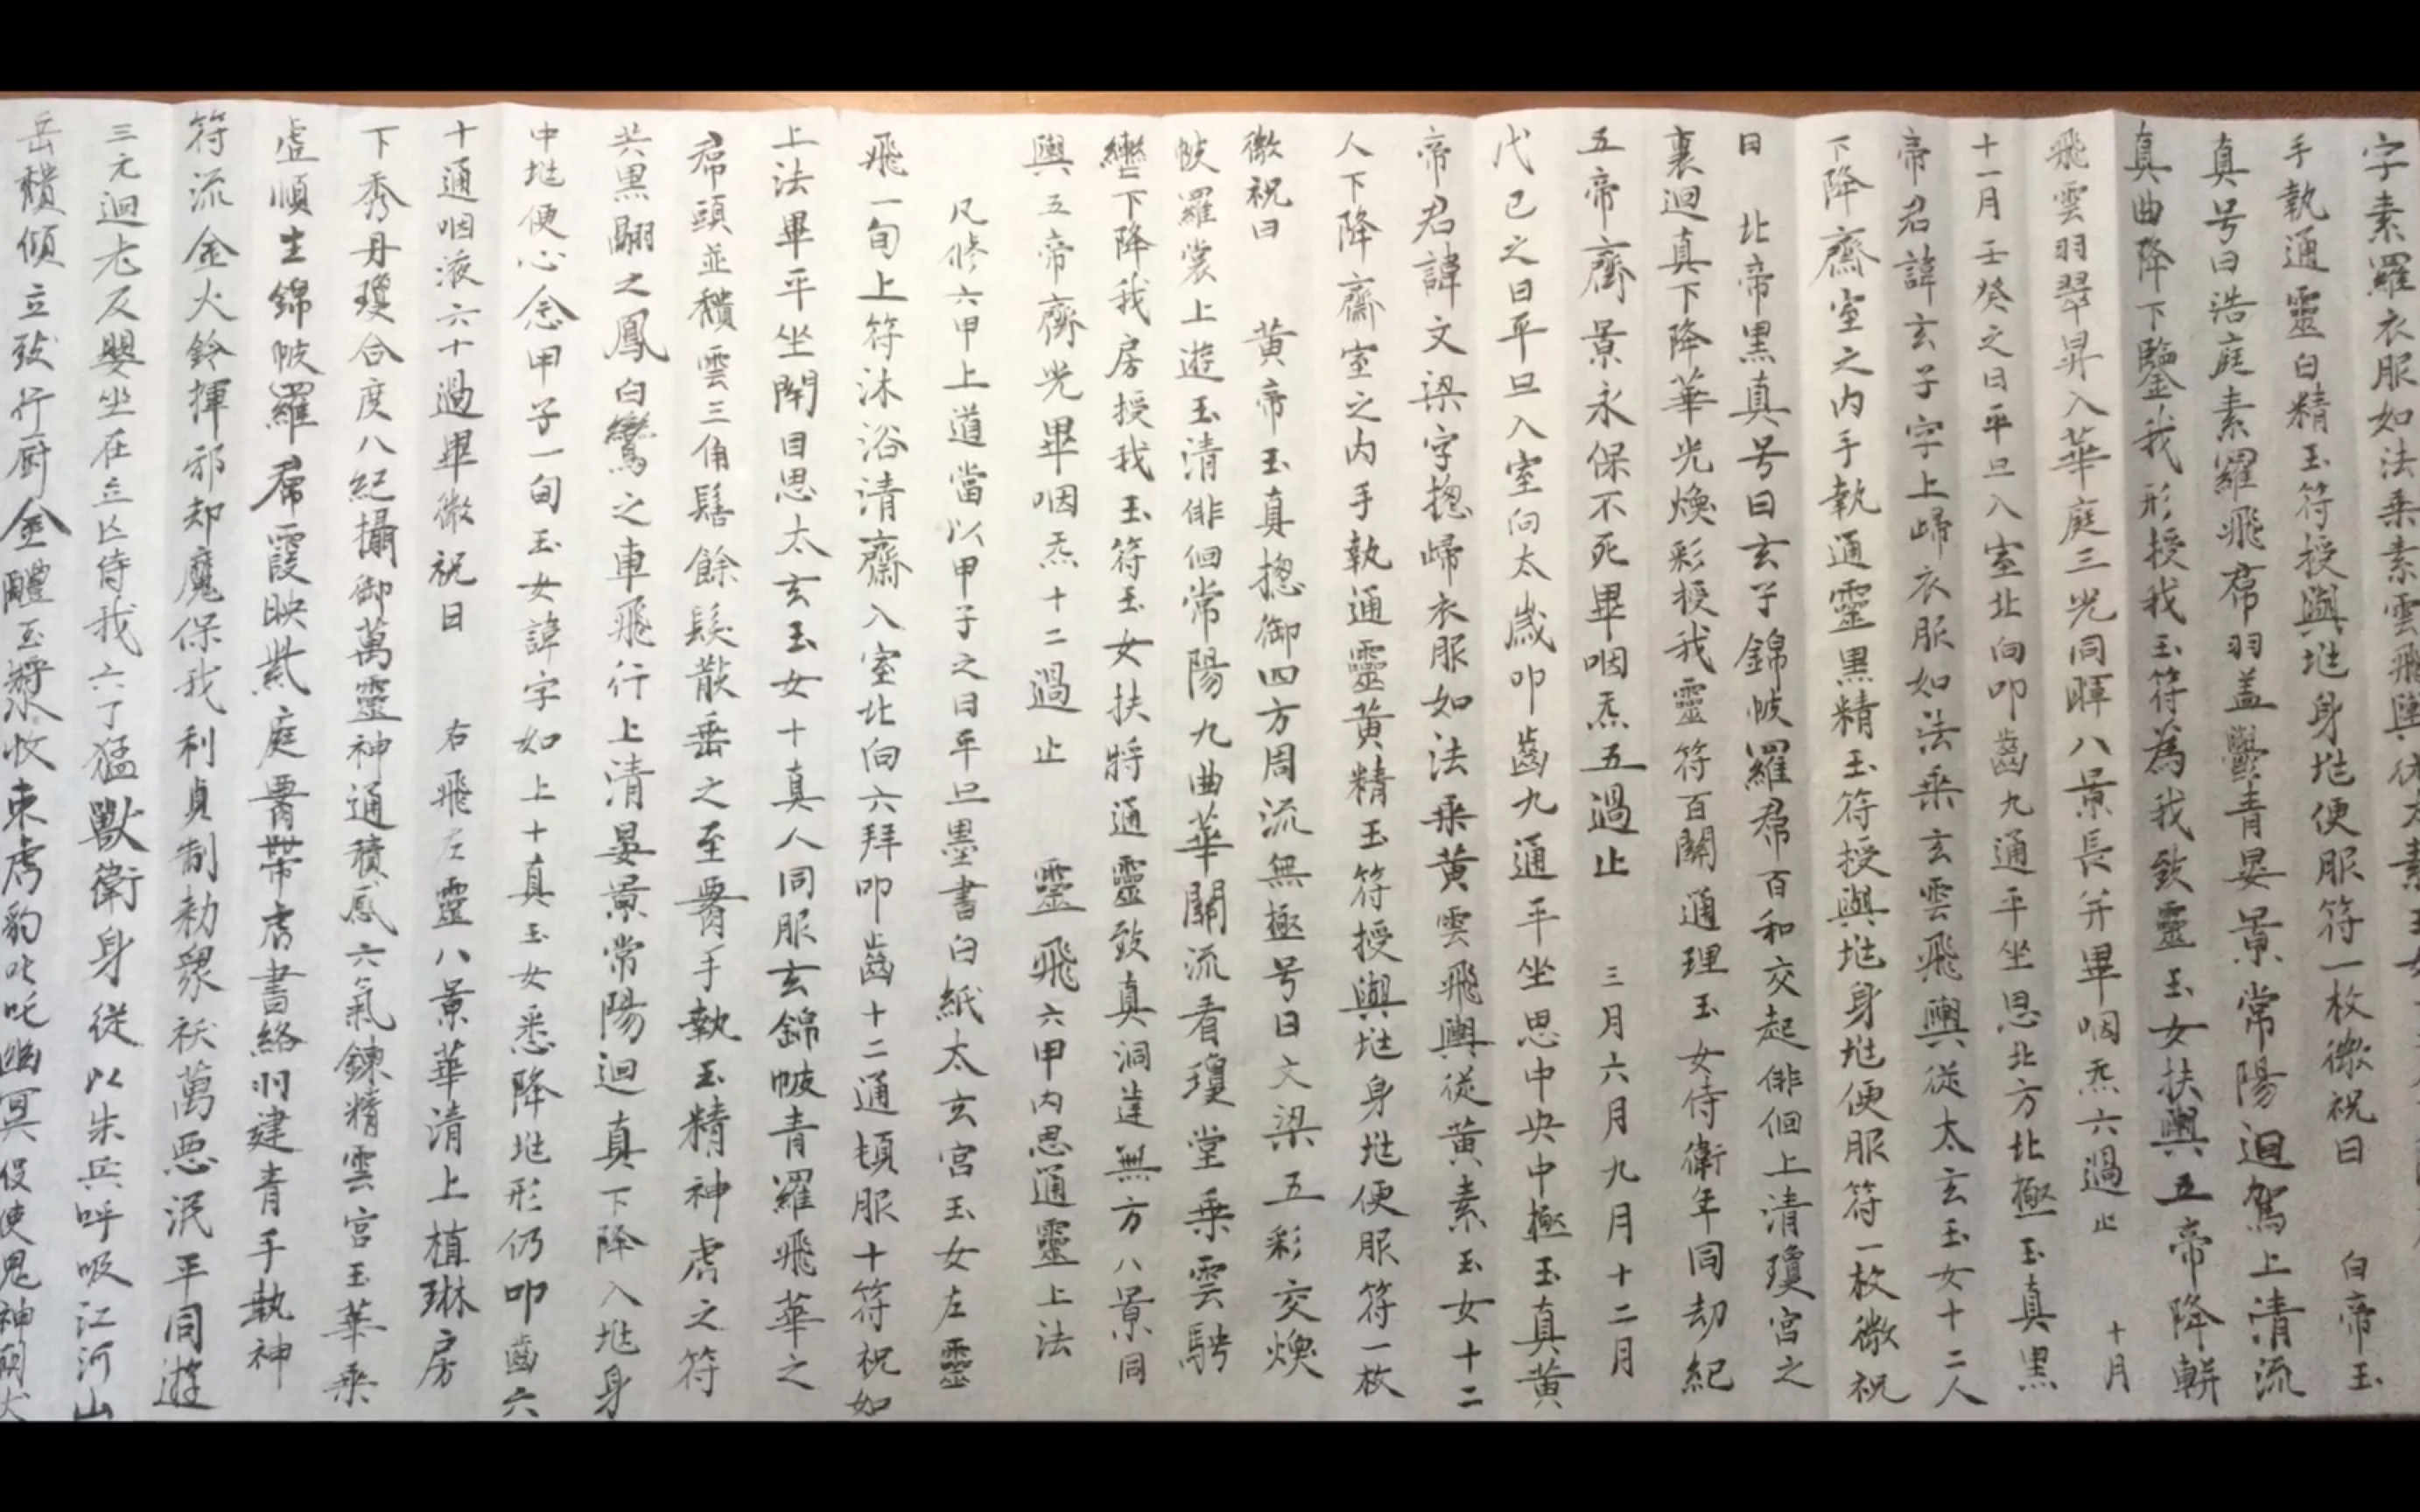 字素羅衣服如法乗素雲飛輿従太素玉女
手執通靈白精玉符授與垗身垗便服符一枚微祝曰　白帝玉
真号曰浩庭素羅飛帬羽盖欝青晏景常陽迴駕上清流
真曲降下鑒我形授我玉符為我致靈玉女扶輿五帝降軿
飛雲羽翠昇入華庭三光同暉八景長并畢咽炁六過止　十月
十一月壬癸之日平旦入室北向叩齒九通平坐思北方北極玉真黒
帝君諱玄子字上歸衣服如法乗玄雲飛輿従太玄玉女十二人
下降齋室之内手執通靈黒精玉符授與垗身垗便服符一枚微祝
曰　北帝黒真号曰玄子錦帔羅帬百和交起俳佪上清瓊宫之
裏迴真下降華光煥彩授我靈符百關通理玉女侍衛年同劫紀
五帝齊景永保不死畢咽炁五過止　三月六月九月十二月
戊己之日平旦入室向太歲叩齒九通平坐思中央中極玉真黄
帝君諱文梁字揔歸衣服如法乗黄雲飛輿從黄素玉女十二
人下降齋室之内手執通靈黄精玉符授與垗身垗便服符一枚
微祝曰　黄帝玉真揔御四方周流無極号曰文梁五彩交煥
帔羅裳上遊玉清俳佪常陽九曲華關流看瓊堂乗雲騁
轡下降我房授我玉符玉女扶将通靈致真洞達無方八景同
輿五帝齊光畢咽炁十二過止　靈飛六甲内思通靈上法
凡修六甲上道當以甲子之日平旦墨書白紙太玄宫玉女左靈
飛一旬上符沐浴清齋入室北向六拜叩齒十二通頓服十符祝如
上法畢平坐閉目思太玄玉女十真人同服玄錦帔青羅飛華之
帬頭並穨雲三角髻餘髪散垂之至署手執玉精神虎之符
共黒翮之鳳白鸞之車飛行上清晏景常陽迴真下降入垗身
中垗便心念甲子一旬玉女諱字如上十真玉女悉降垗形仍叩齒六
十通咽液六十過畢微祝曰　右飛左靈八景華清上植琳房
下秀丹瓊合度八紀攝御萬靈神通積感六氣鍊精雲宫玉華乗
虚順生錦帔羅帬霞映紫庭署帶虎書絡羽建青手執神
符流金火鈴揮邪却魔保我利貞制勑衆祆萬惡泯平同遊
三元迴老反嬰坐在立亡侍我六丁猛獸衛身従以朱兵呼吸江河山
岳穨傾立致行厨金醴玉漿收束虎豹叱咤幽冥役使鬼神朝